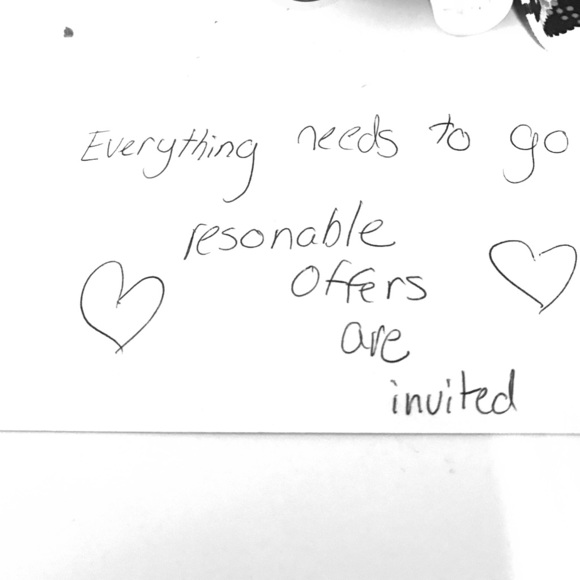 Everything needs to go
resonable
offers
are
invited